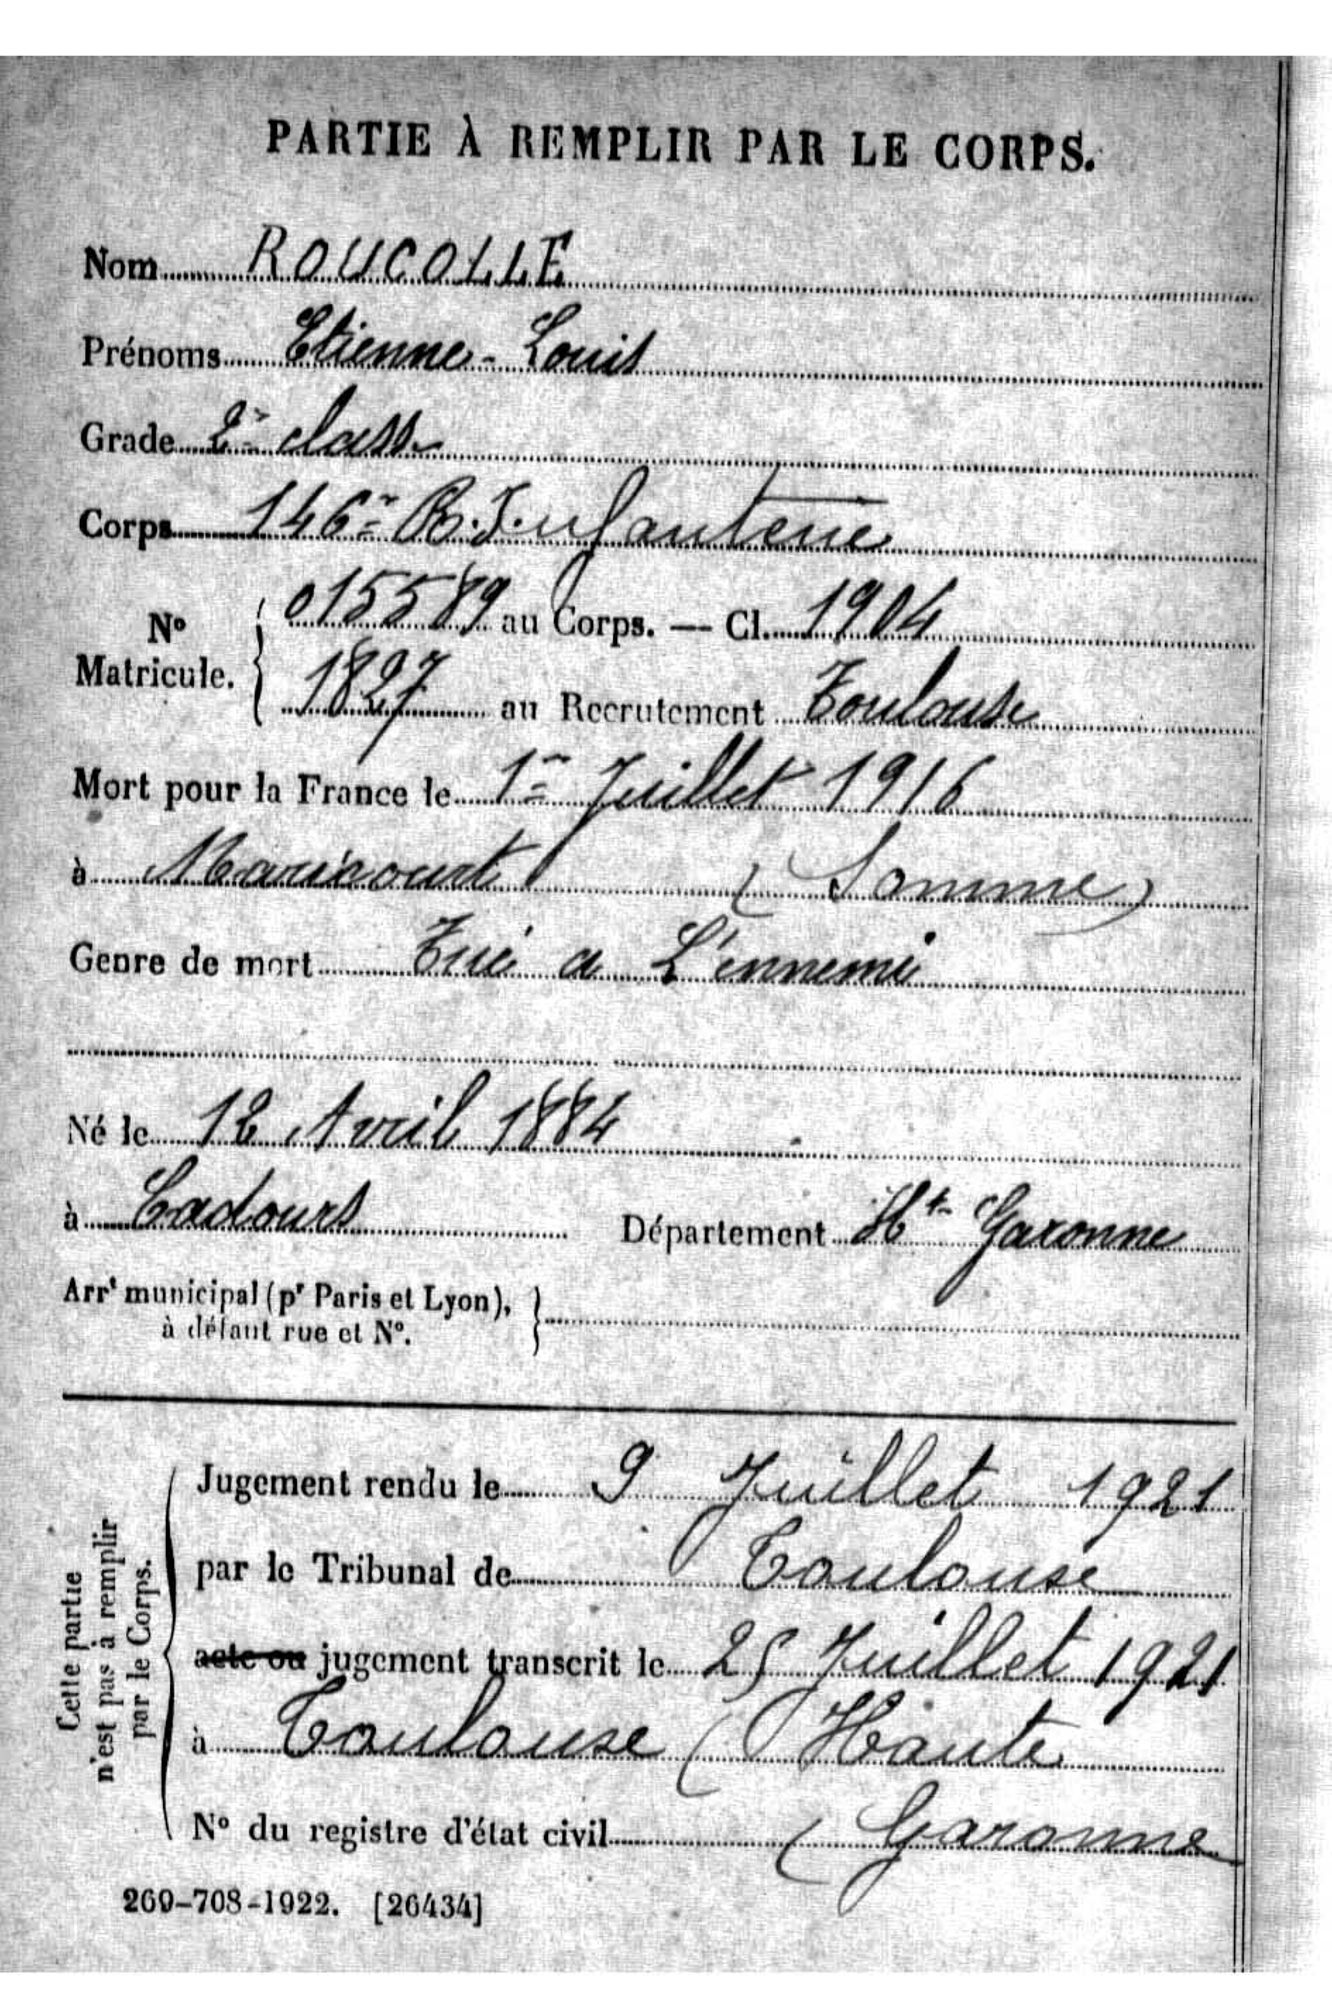 PARTIE À REMPLIR PAR LE CORPS.
Nom ROUCOLLE
Prénoms Etienne-Louis
Grade 2e class
Corps 146e R. Infanterie
No Matricule. 015589 au Corps. — Cl. 1904
1827 au Recrutement Toulouse
Mort pour la France le 1er Juillet 1916
à Maricourt (Somme)
Genre de mort Tué a L'ennemi
Né le 12 Avril 1884
à Cadours Département Hte Garonne
Arrt municipal (pr Paris et Lyon),
à défaut rue et No.
Cette partie
n'est pas à remplir
par le Corps.
Jugement rendu le 9 Juillet 1921
par le Tribunal de Toulouse
acte ou jugement transcrit le 25 Juillet 1921
à Toulouse (Haute
No du registre d'état civil (Garonne
269-708-1922. [26434]